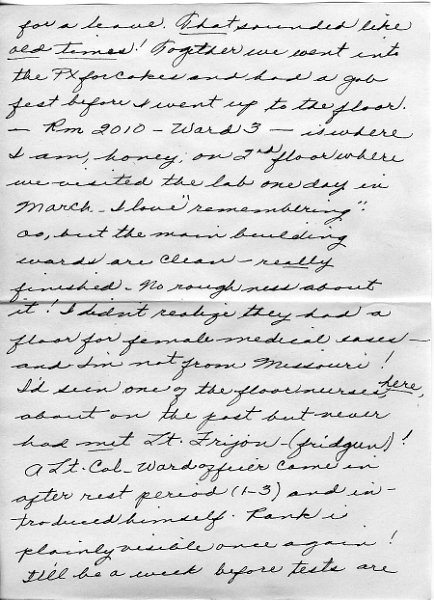 for a leave. That sounded like
old times! Together we went into
the PX for cokes and had a gab
fest before I went up to the floor.
— Rm 2010 – Ward 3 — is where
I am, honey, on 2nd floor where
we visited the lab one day in
March – I love "remembering".
Oo, but the main building
wards are clean – really
finished – No roughness about
it! I didn't realize they had a
floor for female medical cases –
and I'm not from Missouri!
I'd seen one of the floor nurses, here,
about on the post but never
had met Lt. Frijon – (fridgun)!
A Lt. Col – Ward officer came in
after rest period (1-3) and in-
troduced himself. Rank is
plainly visible once again!
It'll be a week before tests are